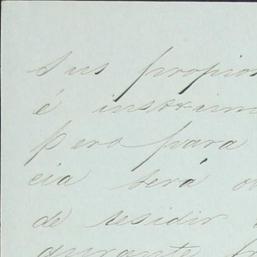 sus propios
é instrum
Pero para
cia será o
de residir
durante